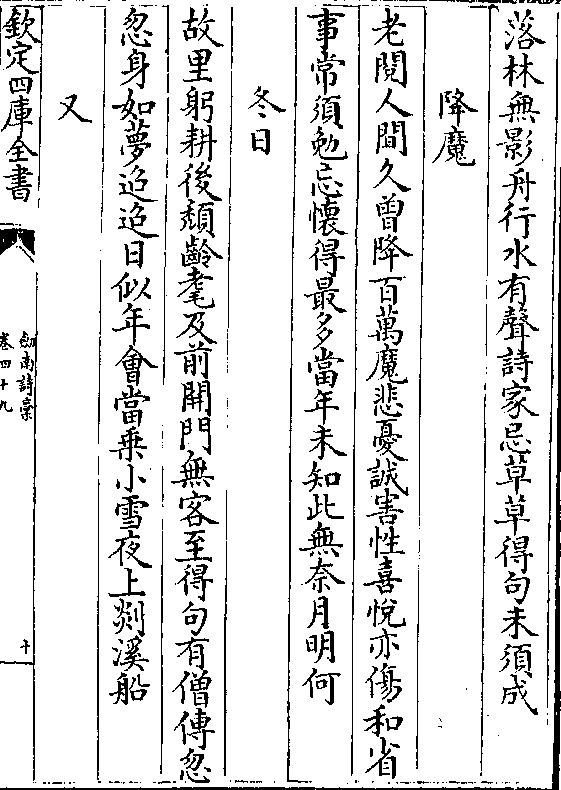 落林無影舟行水有聲詩家忌草草得句未須成
降魔
老閱人間久曾降百萬魔悲憂誠害性喜悅亦傷和省
事常須勉忘懷得最多當年未知此無奈月明何
冬日
故里躬耕後頽齡耄及前開門無客至得句有僧傳忽
忽身如夢迢迢日似年會當乘小雪夜上剡溪船
又
欽定四庫全書
劎南詩稾
卷四十九
十